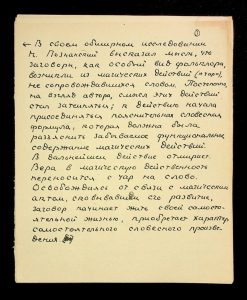 ①
← В своем обширном исследовании
Н. Познанский высказал мысль, что
заговоры, как особый вид фольклора,
возникли из магических действий (чар),
не сопровождавшихся словом. Постепенно,
на взгляд автора, смысл этих действий
стал затемняться; к действию начала
присоединяться пояснительная словесная
формула, которая должна была
разъяснить забываемое функциональное
содержание магических действий.
В дальнейшем действие отмирает.
Вера в магическую действенность
переносится с чар на слово.
Освобождаясь от связи с магическим
актом, сковывавшим его развитие,
заговор начинает жить своей самосто-
ятельной жизнью, приобретает характер
самостоятельного словесного произве-
дения